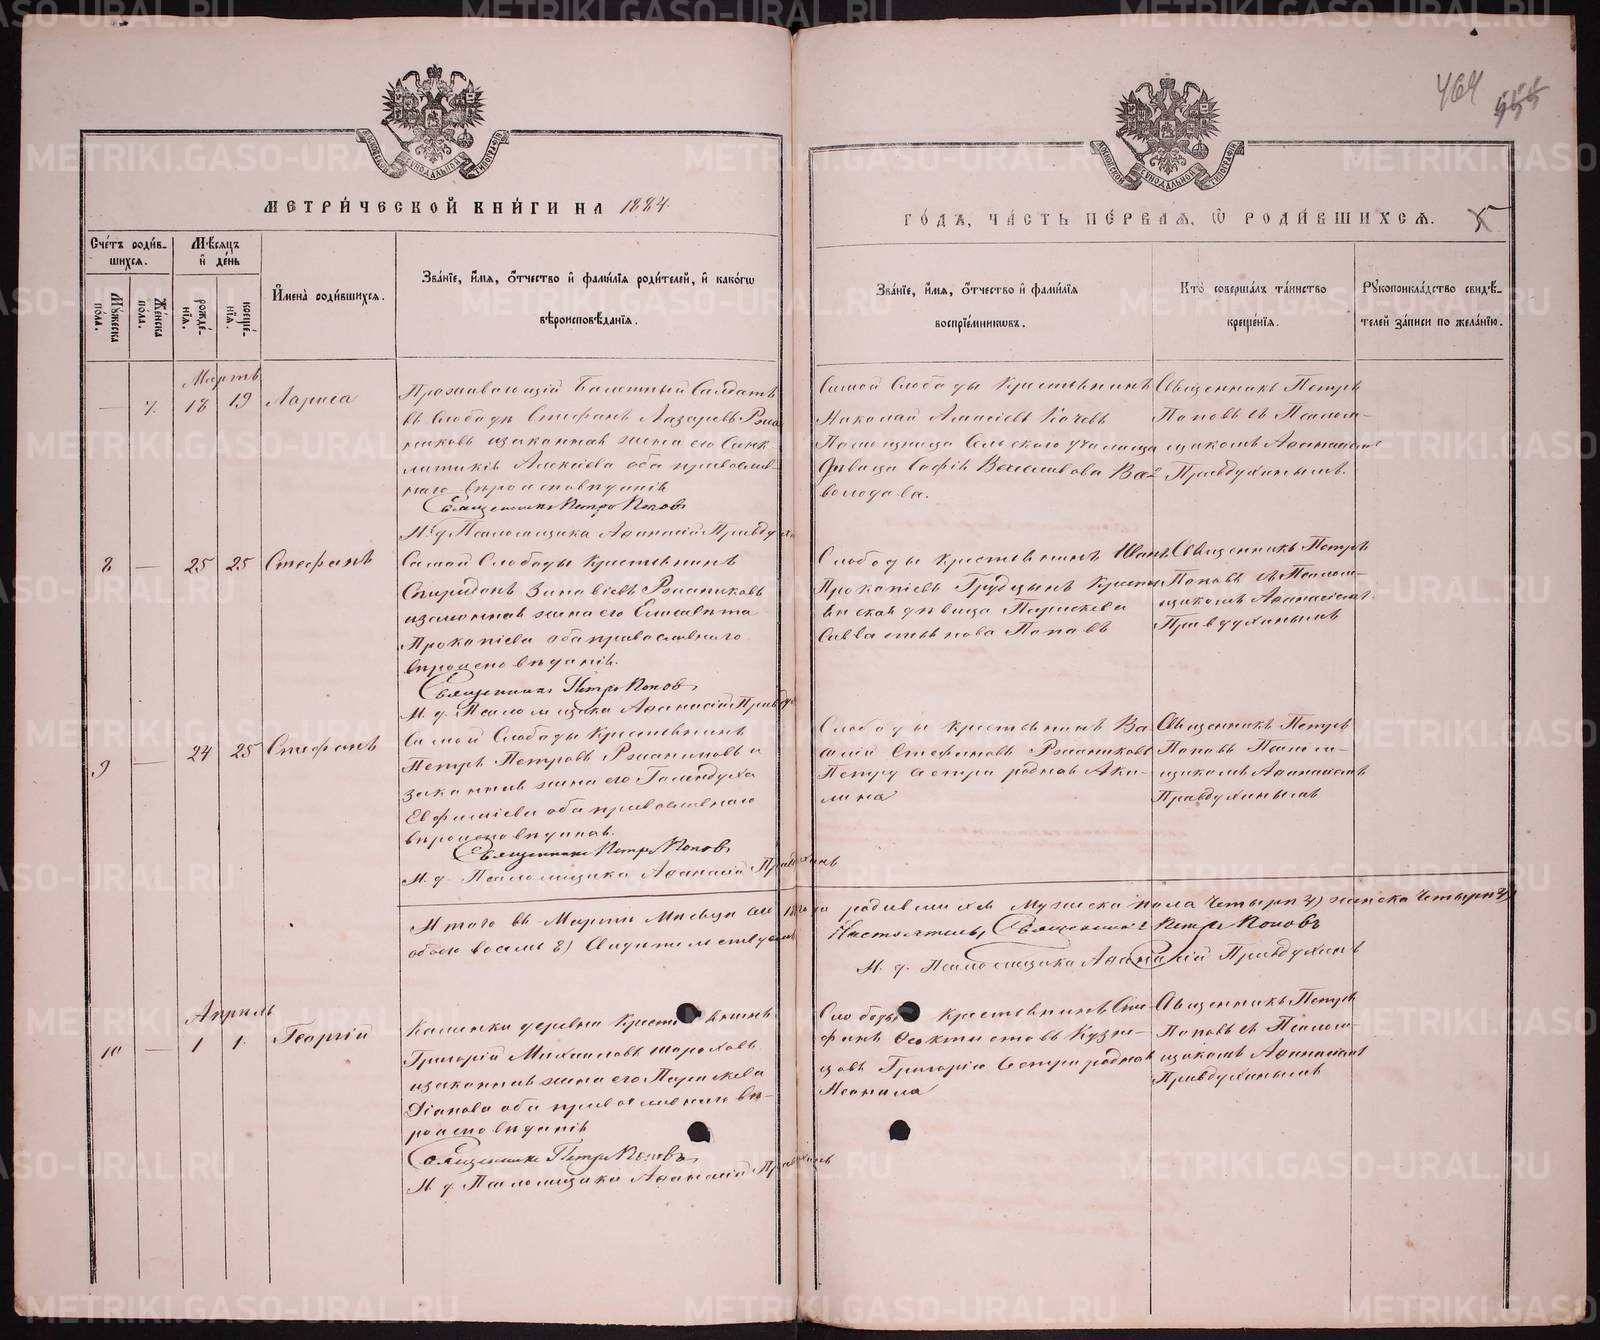 464
МЕТРИЧЕСКОЙ КНИГИ НА 1884.
ГОДЪ, ЧАСТЬ ПЕРВАЯ, Ѡ РОДИВШИХСЯ.
Счетъ родив-
шихся.
Мѣсяцъ
и день
Мужеска пола.
Женска пола.
рожде-
нія.
креще-
нія.
Имена родившихся.
Званіе, имя, отчество и фамилія родителей, и какогѡ
вѣроисповѣданія.
Званіе, имя, отчество и фамилія
воспріемниковъ.
Кто совершалъ таинство
крещенія.
Рукоприкладство свидѣ-
телей записи по желанію.
Мартъ
— 7. 18 19 Лариса
Проживающій Билетный Солдатъ
въ Слободѣ Стефанъ Лазаревъ
и законная жена его Синк-
литикія Алексіева оба православ-
наго вѣроисповѣданія
Священникъ Петръ Поповъ
И. д. Псаломщика Афанасій Правдухинъ
Самой Слободы Крестьянинъ
Николай Алексіевъ Качевъ
Помощница Сельского училища
дѣвица Софія
Священникъ Петръ
Поповъ съ Псалом-
щикомъ Афанасіемъ
Правдухинымъ.
8 — 25 25 Стефанъ
Самой Слободы Крестьянинъ
Спиридонъ Зиновіевъ
и законная жена его Елисавета
Прокопіева оба православнаго
вѣроисповѣданія.
Священникъ Петръ Поповъ
И. д. Псаломщика Афанасій Правдухинъ
Слободы крестьянинъ Иванъ
Прокопіевъ Грудцынъ Кресть-
янская дѣвица Параскева
Савватіянова Поповъ
Священникъ Петръ
Поповъ съ Псалом-
щикомъ Афанасіемъ
Правдухинымъ
9 — 24 25 Стефанъ
Самой Слободы Крестьянинъ
Петръ Петровъ и
законная жена его Гликерія
Евфиміева оба православнаго
вѣроисповѣданія.
Священникъ Петръ Поповъ
И. д. Псаломщика Афанасій Правдухинъ
Слободы крестьянинъ Ва-
силій Стефановъ
Петру сестра родная Аки-
лина
Священникъ Петръ
Поповъ Псалом-
щикомъ Афанасіемъ
Правдухинымъ
Итого въ Мартѣ Мѣсяцѣ сего 1884 года родившихся Мужеска пола Четыре 4) женска Четыре 4)
обоего восемь 8) Свидѣтельствуемъ
Настоятель, Священникъ Петръ Поповъ
И. д. Псаломщика Афанасій Правдухинъ
Апрѣль
10 — 1 1. Георгій
Каменки деревни Крестьянинъ
Григорій Михаиловъ Шороховъ
и законная жена его Параскева
Діанова оба православнаго вѣ-
роисповѣданія
Священникъ Петръ Поповъ
И. д. Псаломщика Афанасій Правдухинъ
Слободы крестьянинъ Сте-
фанъ Феоктистовъ Кузне-
цовъ Григорія Сестра родная
Неонила
Священникъ Петръ
Поповъ съ Псалом-
щикомъ Афанасіемъ
Правдухинымъ
METRIKI.GASO-URAL.RU